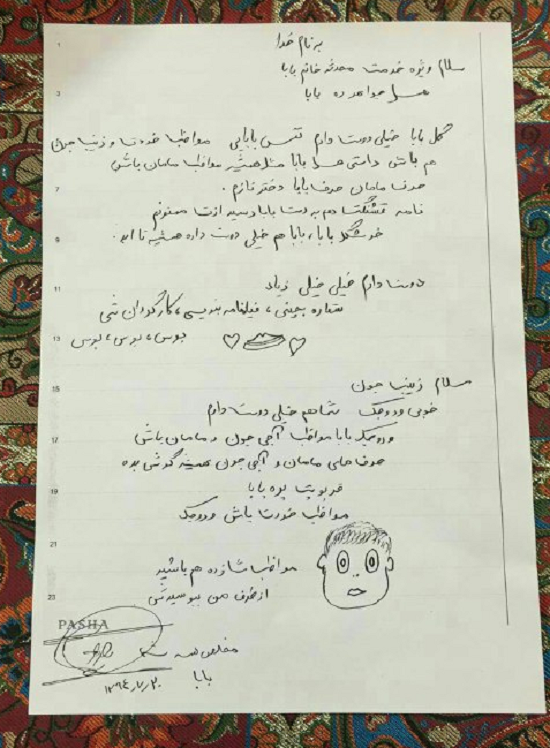 به نام خدا
سلام ویژه خدمت محدثه خانم بابا
بابا
گل بابا خیلی دوست دارم نفس بابایی مواظب خودت و زینب جون
هم باش راستی عسل بابا مثل همیشه مواظب مامان باش
حرف مامان حرف بابا دختر نازم.
نامه قشنگت هم به دست بابا رسید ازت ممنونم
خوشگل بابا، بابا هم خیلی دوست داره همیشه تا ابد.
دوست دارم خیلی خیلی زیاد
ستاره بچینی، فیلمنامه بنویسی، کارگردان شی
بوس، بوس، بوس
سلام زینب جون
خوبی وروجک شما هم خیلی دوست دارم
وروجک بابا مواظب آجی جون و مامان باش
حرف های مامان و آجی جون همیشه گوش بده
قربونت بره بابا
مواظب خودت باش وروجک
مواظب شازده هم باشید
از طرف من ببوسیدش
PASHA
مخلص همه شما
بابا
1
3
7
9
11
13
15
17
19
21